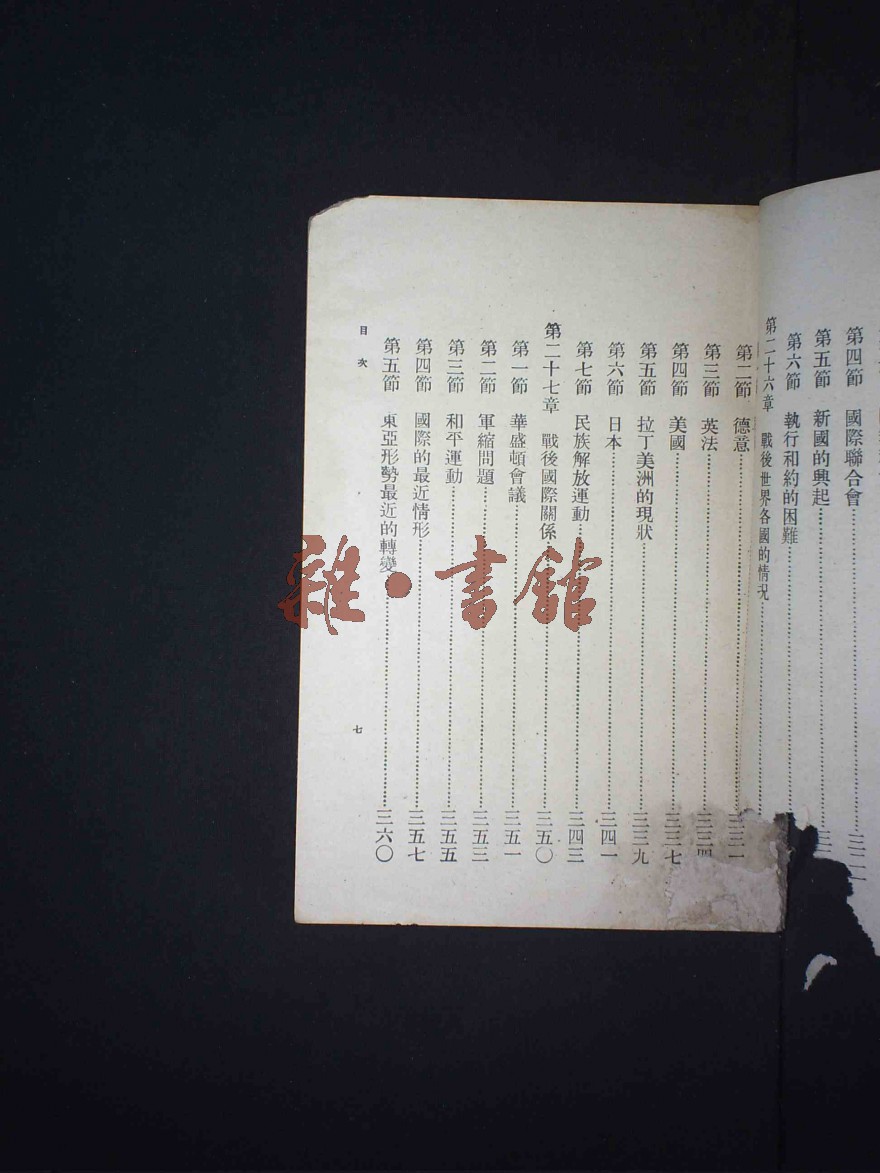 第四節 國際聯合會
第五節 新國的興起
第六節 執行和約的困難
第二十六章 戰後世界各國的情况
第二節 德意
第三節 英法
第四節 美國 三三七
第五節 拉丁美洲的現狀 三三九
第六節 日本 三四一
第七節 民族解放運動 三四三
第二十七章 戰後國際關係 三五〇
第一節 華盛頓會議 三五一
第二節 軍縮問題 三五三
第三節 和平運動 三五五
第四節 國際的最近情形 三五七
第五節 東亞形勢最近的轉變 三六〇
目次
七
雜·書館